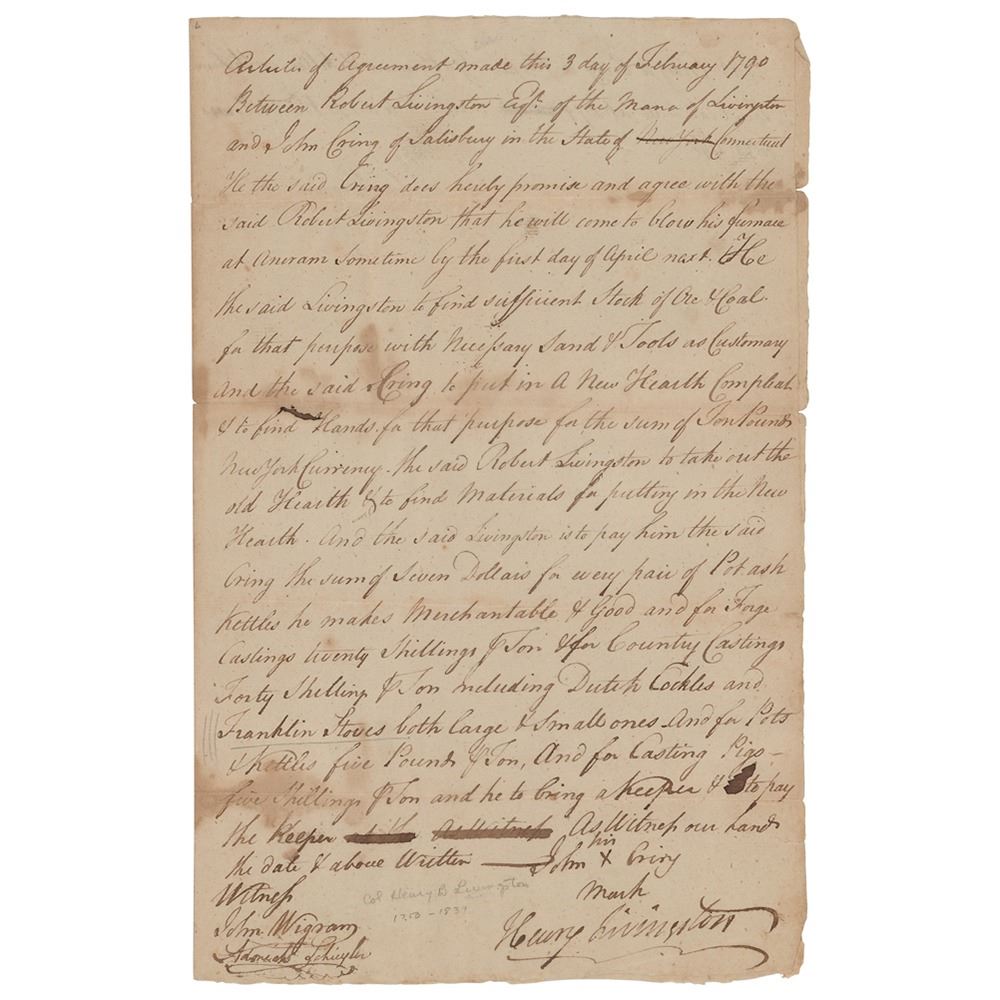 Articles of Agreement made this 3 day of February 1790
Between Robert Livingston Esqr. of the Mano of Livingston
and John Cring of Salisbury in the State of New York Connecticut
He the said Cring does hereby promise and agree with the
said Robert Livingston that he will come to blow his furnace
at Ancram Sometime by the first day of April next. He
the said Livingston to find sufficient Stock of Ore & Coal
for that purpose with Necessary Sand & Tools as Customary
And the said Cring to put in A New Hearth Compleat
& to find Hands for that purpose for the sum of Ton Pounds
New York Currency. the said Robert Livingston to take out the
old Hearth & to find Materials for putting in the New
Hearth. And the said Livingston is to pay him the said
Cring the sum of Seven Dollars for every pair of Pot ash
Kettles he makes Merchantable & Good and for Forge
Castings twenty Shillings ⅌ Ton & for Country Castings
Forty Shillings ⅌ Ton including Dutch Cockles and
Franklin Stoves both large & Small ones And for Pots
& Kettles five Pounds ⅌ Ton, And for Casting Pigs –
five Shillings ⅌ Ton and he to bring a Keeper & to pay
the Keeper As Witness As Witness our hands
the date & above Written — John his X Cring
Witness Mark
Col Henry B Livingston
1750 - 1831
John Wigram
Schuyler
Henry Livingston